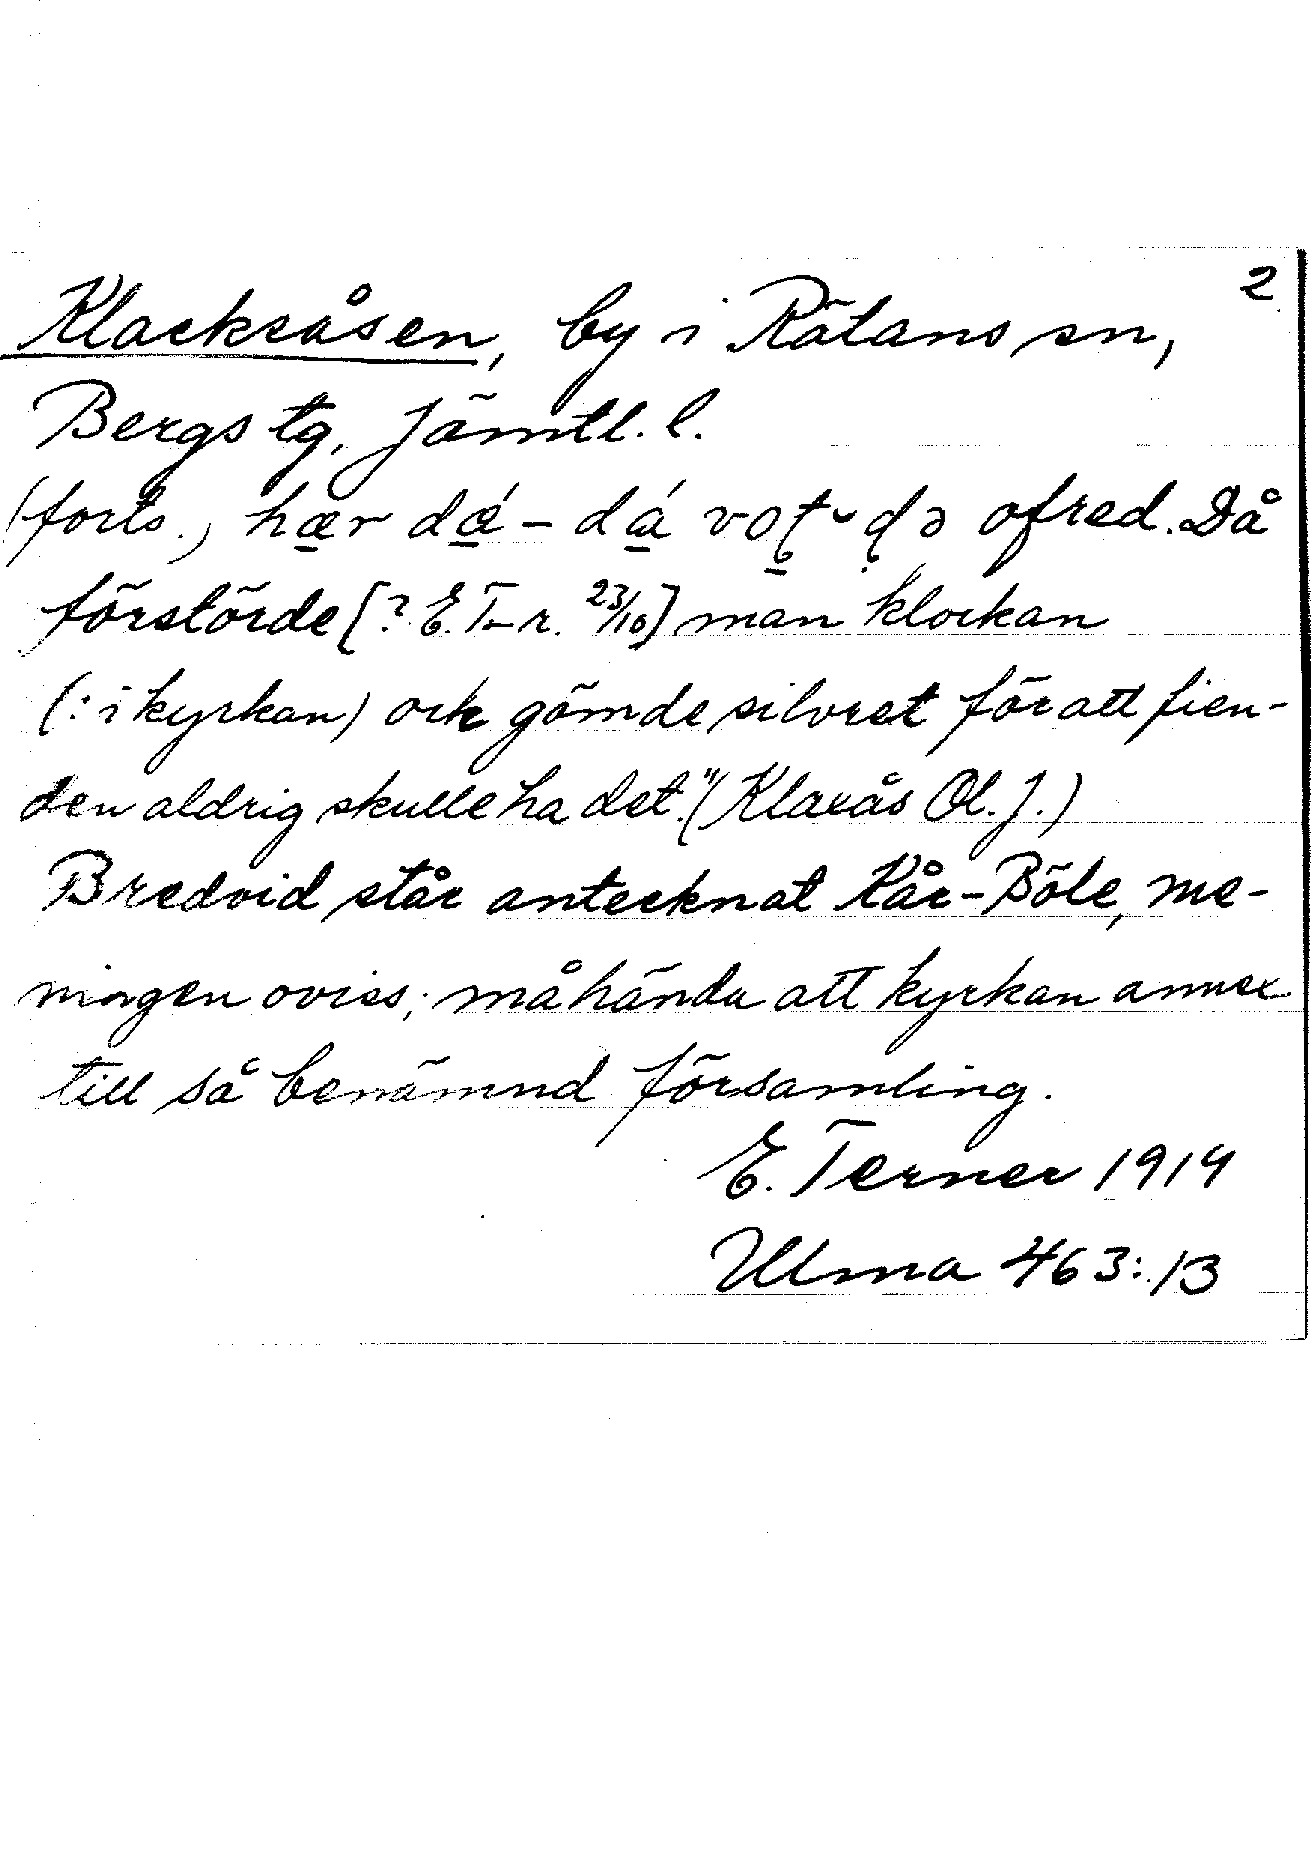 2
Klackråsen, by i Rätans sn,
Bergs tg, Jämtl. l.
(forts.) hær dǽ – dá ofred. Då
förstörde [? E. T-r. 23/10] man klockan
(: i kyrkan) ock gömde silvret för att fien-
den aldrig skulle ha det." (Klaxås Ol. J.)
Bredvid står antecknat Kår-Böle, me-
ningen oviss; måhända att kyrkan annex
till så benämnd församling.
E. Terner 1914
Ulma 463:13